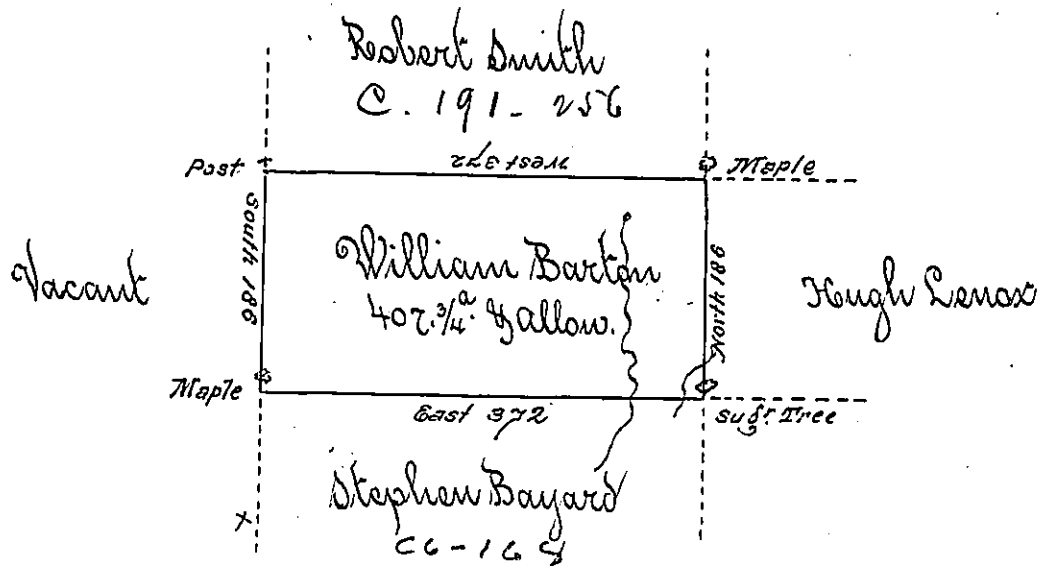 Robert Smith
C. 191 - 256
Post
West 372
Maple
South 186
Vacant
William Barton
407. 3/4 a. & allow.
North 186
Hugh Lenox
Maple
East 372
sugr. Tree
Stephen Bayard